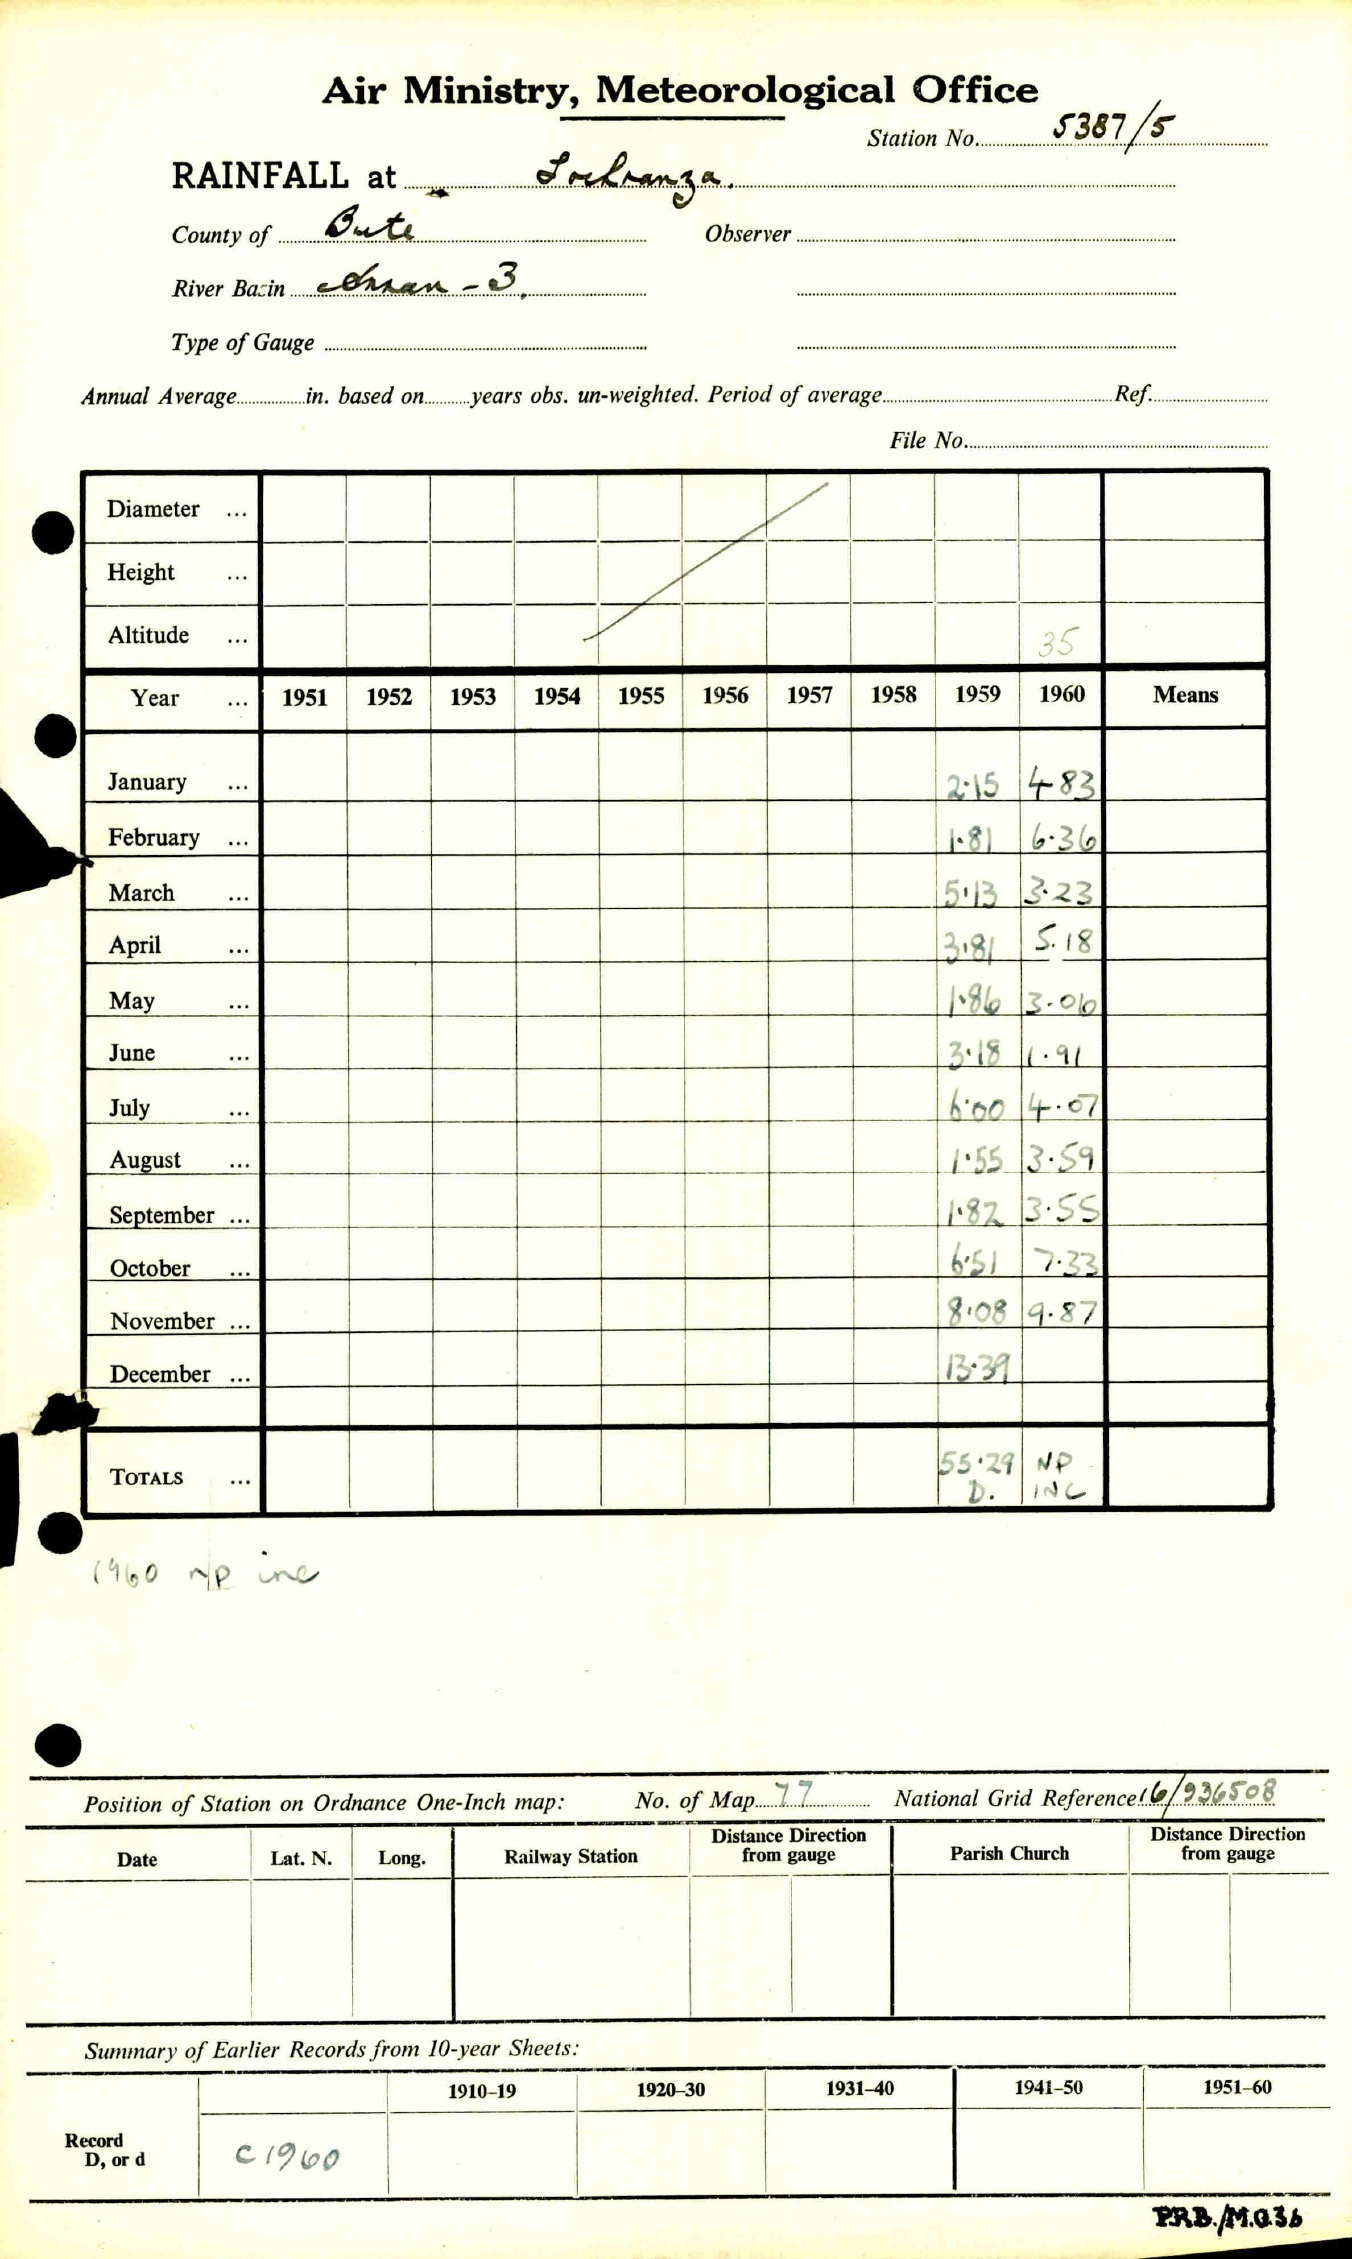 Air Ministry, Meteorological Office
Station No. 5387/5
RAINFALL at Lochranza.
County of Bute Observer
River Basin Arran - 3.
Type of Gauge
Annual Average in. based on years obs. un-weighted. Period of average Ref.
File No.
Diameter ...
Height ...
Altitude ... 35
Year ... 1951 1952 1953 1954 1955 1956 1957 1958 1959 1960 Means
January ... 2·15 4·83
February ... 1·81 6·36
March ... 5·13 3·23
April ... 3·81 5.18
May ... 1·86 3·06
June ... 3·18 1·91
July ... 6·00 4·07
August ... 1·55 3·59
September ... 1·82 3·55
October ... 6·51 7·33
November ... 8·08 9·87
December ... 13·39
TOTALS ... 55·29 NP
D. INC
1960 n/p inc
Position of Station on Ordnance One-Inch map: No. of Map 77 National Grid Reference 16/936508
Date Lat. N. Long. Railway Station Distance Direction from gauge Parish Church Distance Direction from gauge
Summary of Earlier Records from 10-year Sheets:
1910–19 1920–30 1931–40 1941–50 1951–60
Record
D, or d C1960
P.R.B./M.O.36